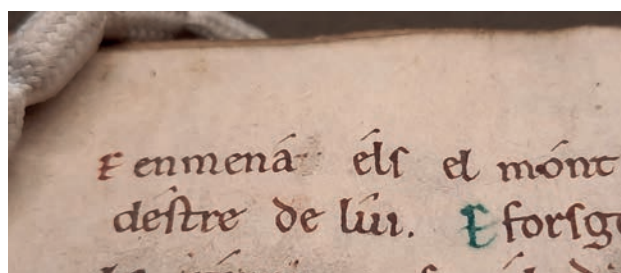 E enmená els el mónt
deſtre de lúi. E forſge